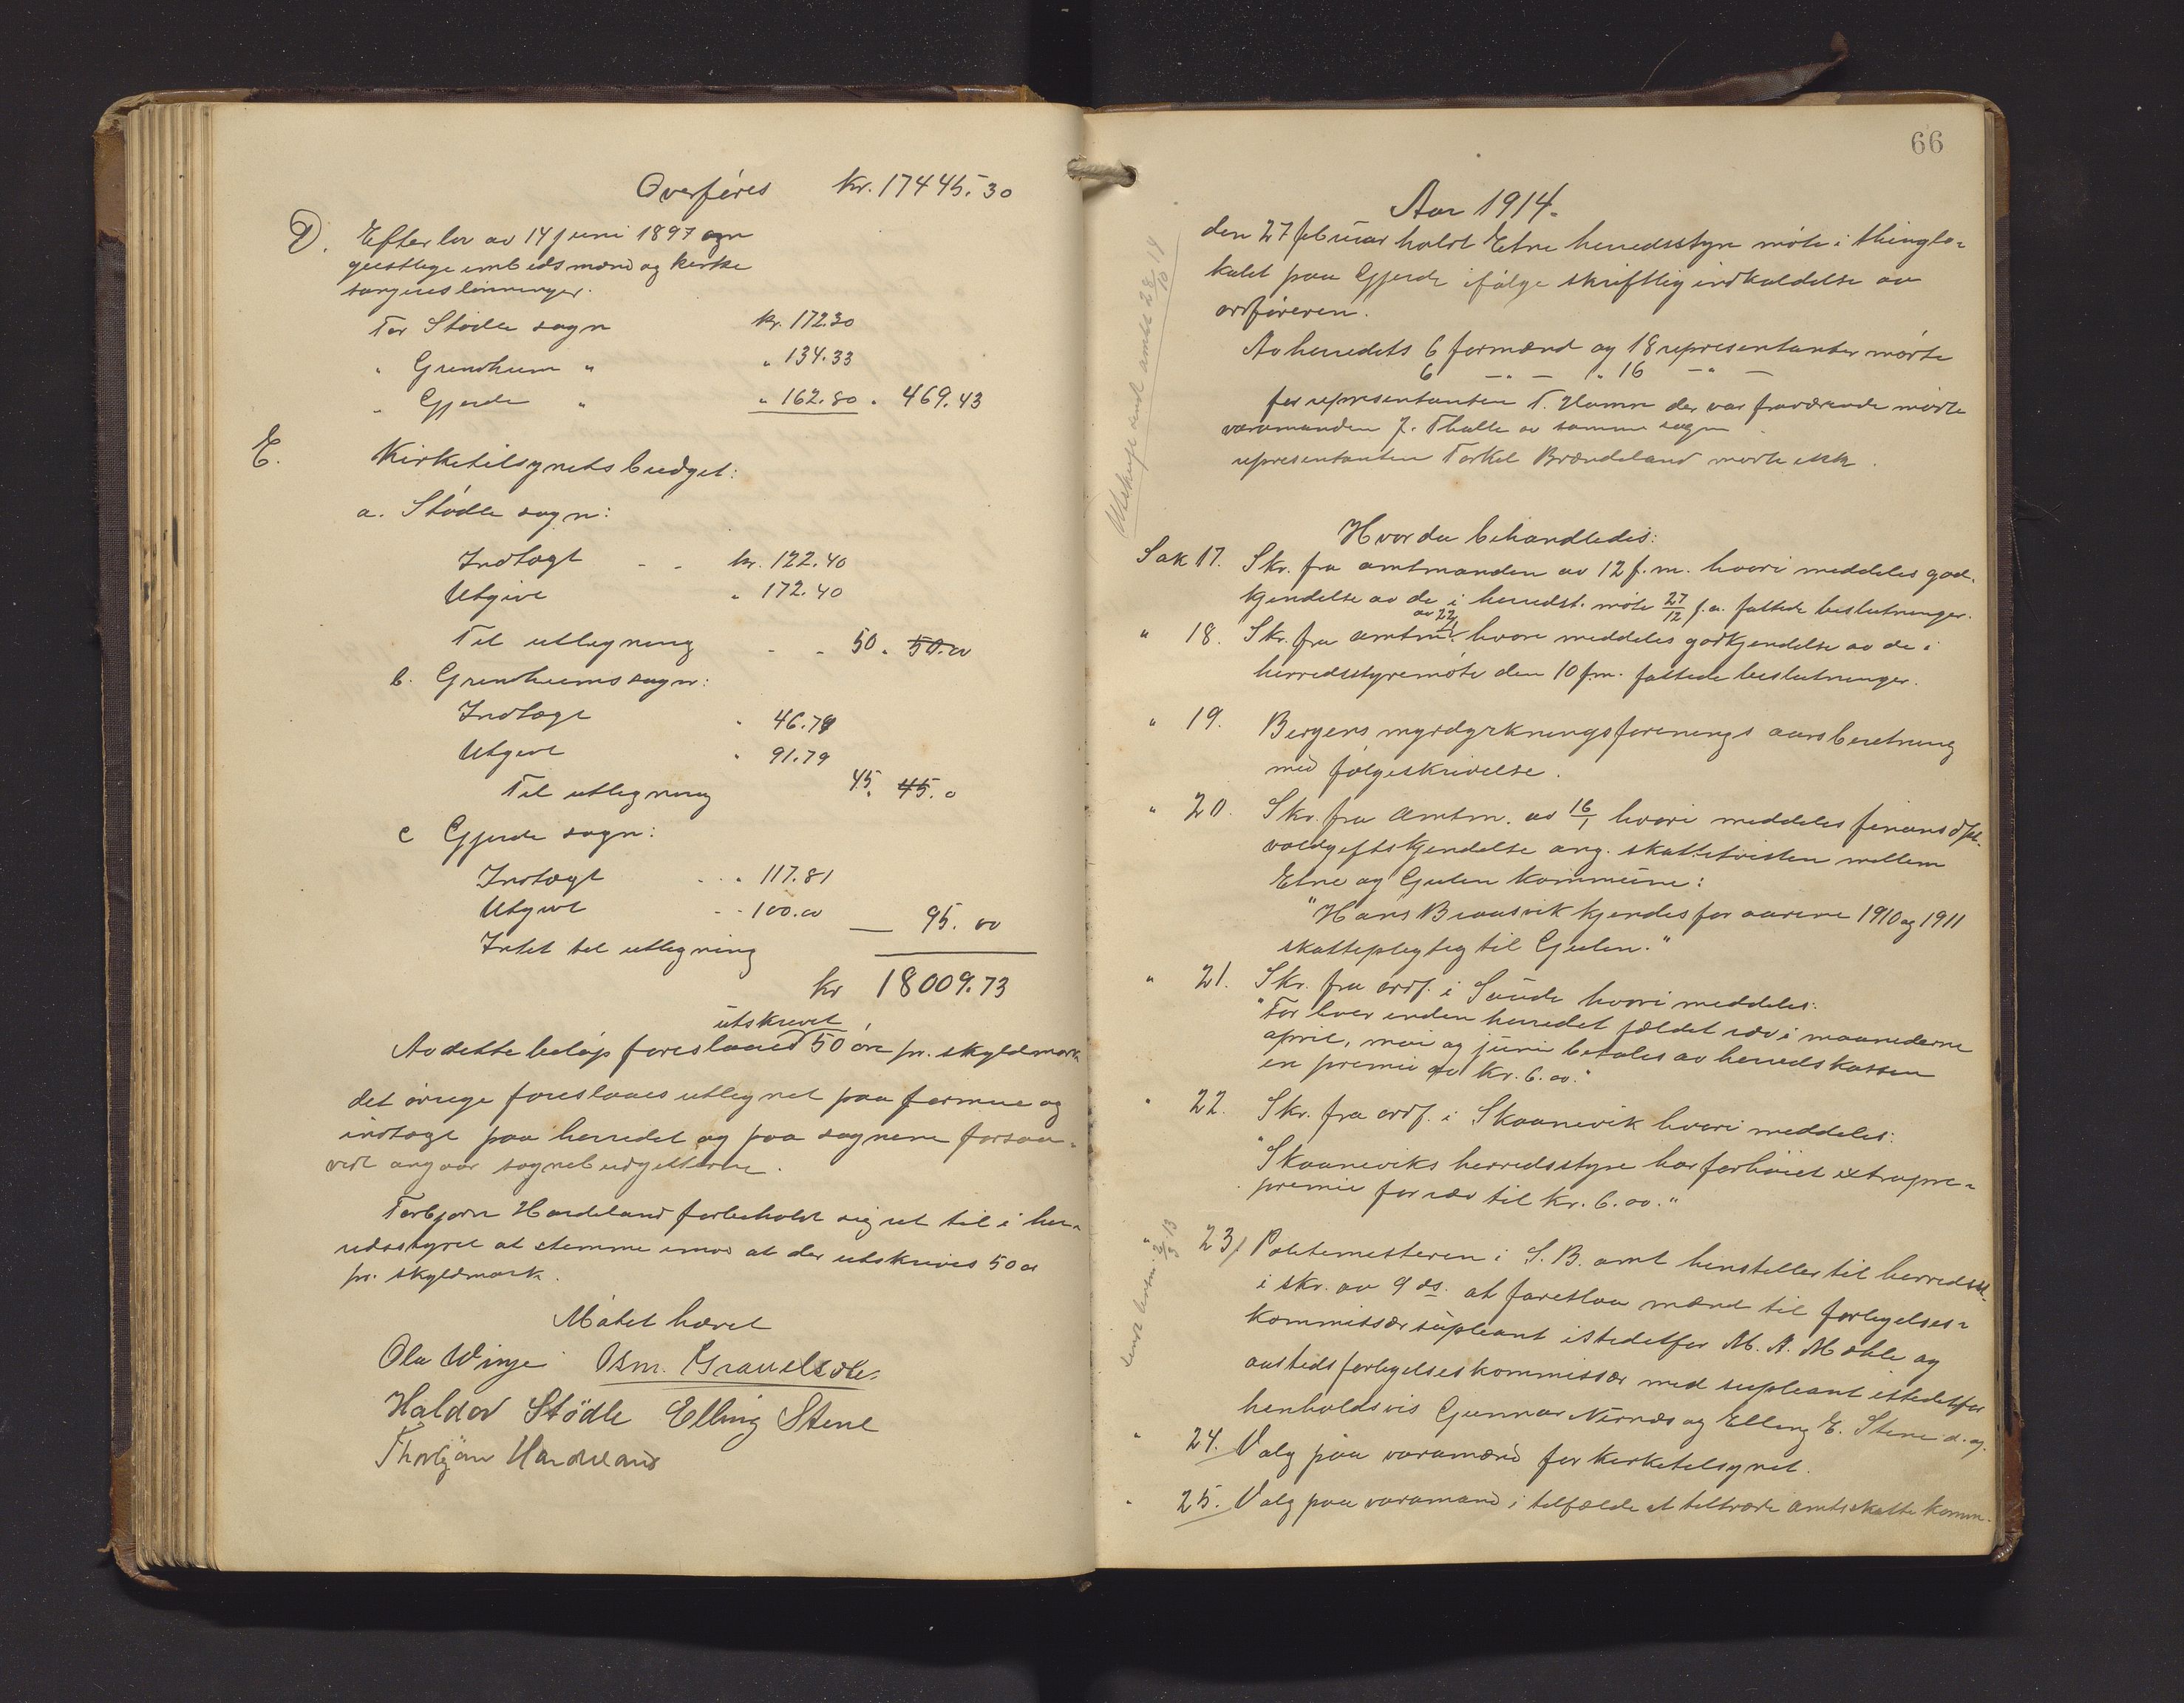 Overføres Kr. 17445.30
D. Efter lov av 14 juni 1897 om
geistlige embedsmænd og kirke
sangeres lønninger.
For Stødle sogn kr. 172.30
" Grindheim " " 134.33
" Gjerde " " 162.80 " 469.43
E. Kirketilsynets budget:
a. Stødle sogn:
Indtægt - - kr. 122.40
Utgivt " 172.40
Til utlegning - - 50. 50.00
b. Grindheims sogn:
Indtægt " 46.79
Utgivt " 91.79
Til utlegning 45. 45.0
c Gjerde sogn:
Indtægt - - " 117.81
Utgivt - - 100.00 — 95.00
Intet til utlegning
kr 18009.73
utskrevet
Av dette beløp foreslaaes 50 øre pr. skyldmark
det øvrige foreslaaes utlignet paa formue og
indtægt paa herredet og paa sognene forsaa-
vidt angaar sognebudgetterne.
Torbjørn Hardeland forbeholdt sig ret til i her-
redsstyret at stemme imod at der utskrives 50 ør
pr. skyldmark.
Møtet hævet
Ola Winje Asm. Grauelsæter
Haldor Stödle Elling Stene
Thorbjörn Hardeland
66
Aar 1914.
den 27 februar holdt Etne herredsstyre møte i thinglo-
kalet paa Gjerde ifølge skriftlig indkaldelse av
ordføreren.
Av herredets 6 formænd og 18 representanter møtte
6 — " — " 16 — " —
for representanten T. Hamre der var fraværende møtte
varamanden J. Thalle av samme sogn.
representanten Torkel Brændeland møtte ikke.
Utskrift sendt amtet 28/10 14
Hvor da behandledes:
Sak 17. Skr. fra amtmanden av 12 f.m. hvori meddeles god-
kjendelse av de i herredst. møte 27/12 f.a. fattede beslutninger.
av 22/1
" 18. Skr. fra amtm. hvori meddeles godkjendelse av de i
herredsstyremøte den 10 f.m. fattede beslutninger.
" 19. Bergens myrdyrkningsforenings aarsberetning
med følgeskrivelse.
" 20. Skr. fra amtm. av 16/1 hvori meddeles finansdpt.
voldgiftskjendelse ang. skattetvisten mellem
Etne og Gulen kommune:
"Hans Brausvik kjendes for aarene 1910 og 1911
skattepligtig til Gulen."
" 21. Skr. fra ordf. i Saude hvori meddeles:
"For hver inden herredet fældet ræv i maanederne
april, mai og juni betales av herredskassen
en premie av kr. 6.00."
" 22. Skr. fra ordf. i Skaanevik hvori meddeles:
"Skaaneviks herredsstyre har forhøiet extrapre-
premie for ræv til kr. 6.00."
" 23/ Politimesteren i S. B. amt henstiller til herredsst.
i skr. av 9 ds. at foreslaa mænd til forlegelses-
kommissærsupleant istedetfor M. A. Mæhle og
avstedsforlegelseskommissær med supleant istedetfor
henholdsvis Gunnar Nernæs og Elling E. Stene d.æ.
" 24. Valg paa varamænd for kirketilsynet.
" 25. Valg paa varamand i tilfælde at tiltræde amtsskattekomm.